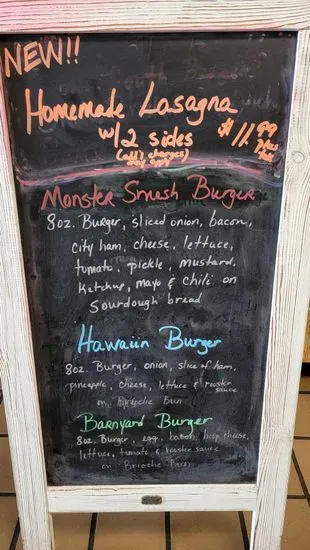 NEW!!
Homemade Lasagna
w/2 sides
(add'l charges
may apply)
$11.99
Plus
Tax
Monster Smash Burger
8oz. Burger, sliced onion, bacon,
city ham, cheese, lettuce,
tomato, pickle, mustard,
Ketchup, mayo & chile on
Sourdough bread
Hawaiin Burger
8oz. Burger, onion, slice of ham,
pineapple, cheese, lettuce & rooster
sauce
on Brioche Bun
Barnyard Burger
8oz. Burger, egg, bacon, hoop cheese,
lettuce, tomato & rooster sauce
on Brioche Bun